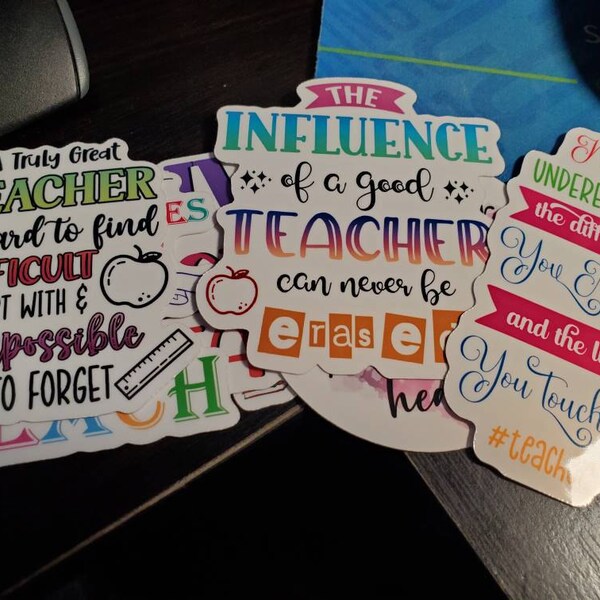 Truly Great
EACHER
ard to find
FICULT
WITH &
possible
TO FORGET
ES
EACH
THE
INFLUENCE
of a good
TEACHER
can never be
erased
hea
UNDERE
the diff
You
and the l
You touch
#teach